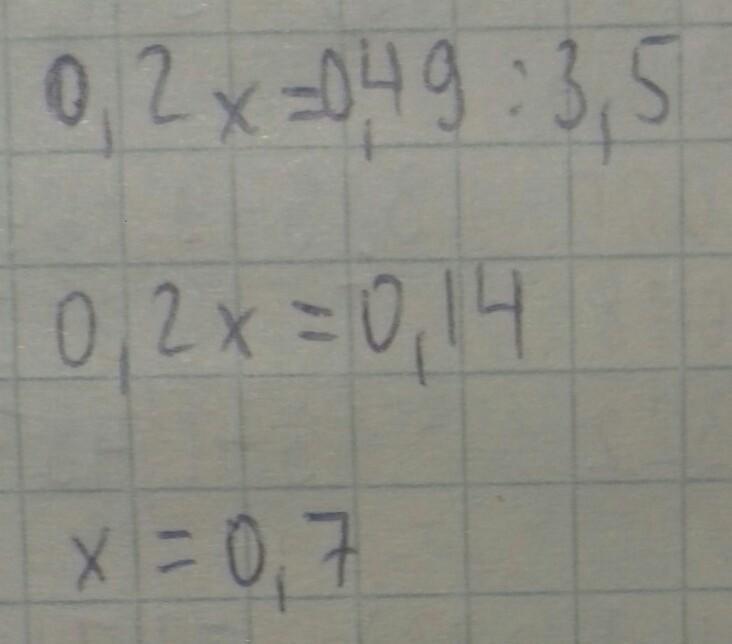 0,2x=0,49:3,5
0,2x=0,14
x=0,7